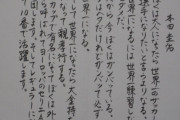 本田圭佑
ぼくは大人になったら世界一のサッカ
選手になりたいと言うよりなる。
世界一になるには世界一練習し
ダメだ。
だから今ぼくはガンバっている。
今はヘタだけれどガンバって必ず
世界一になる。
世界一になったら大金持
なって親孝行する。
になってぼくは外
ばれてヨーロッパのセリエ
団します。そしてレギュラ
て10番で活躍します。